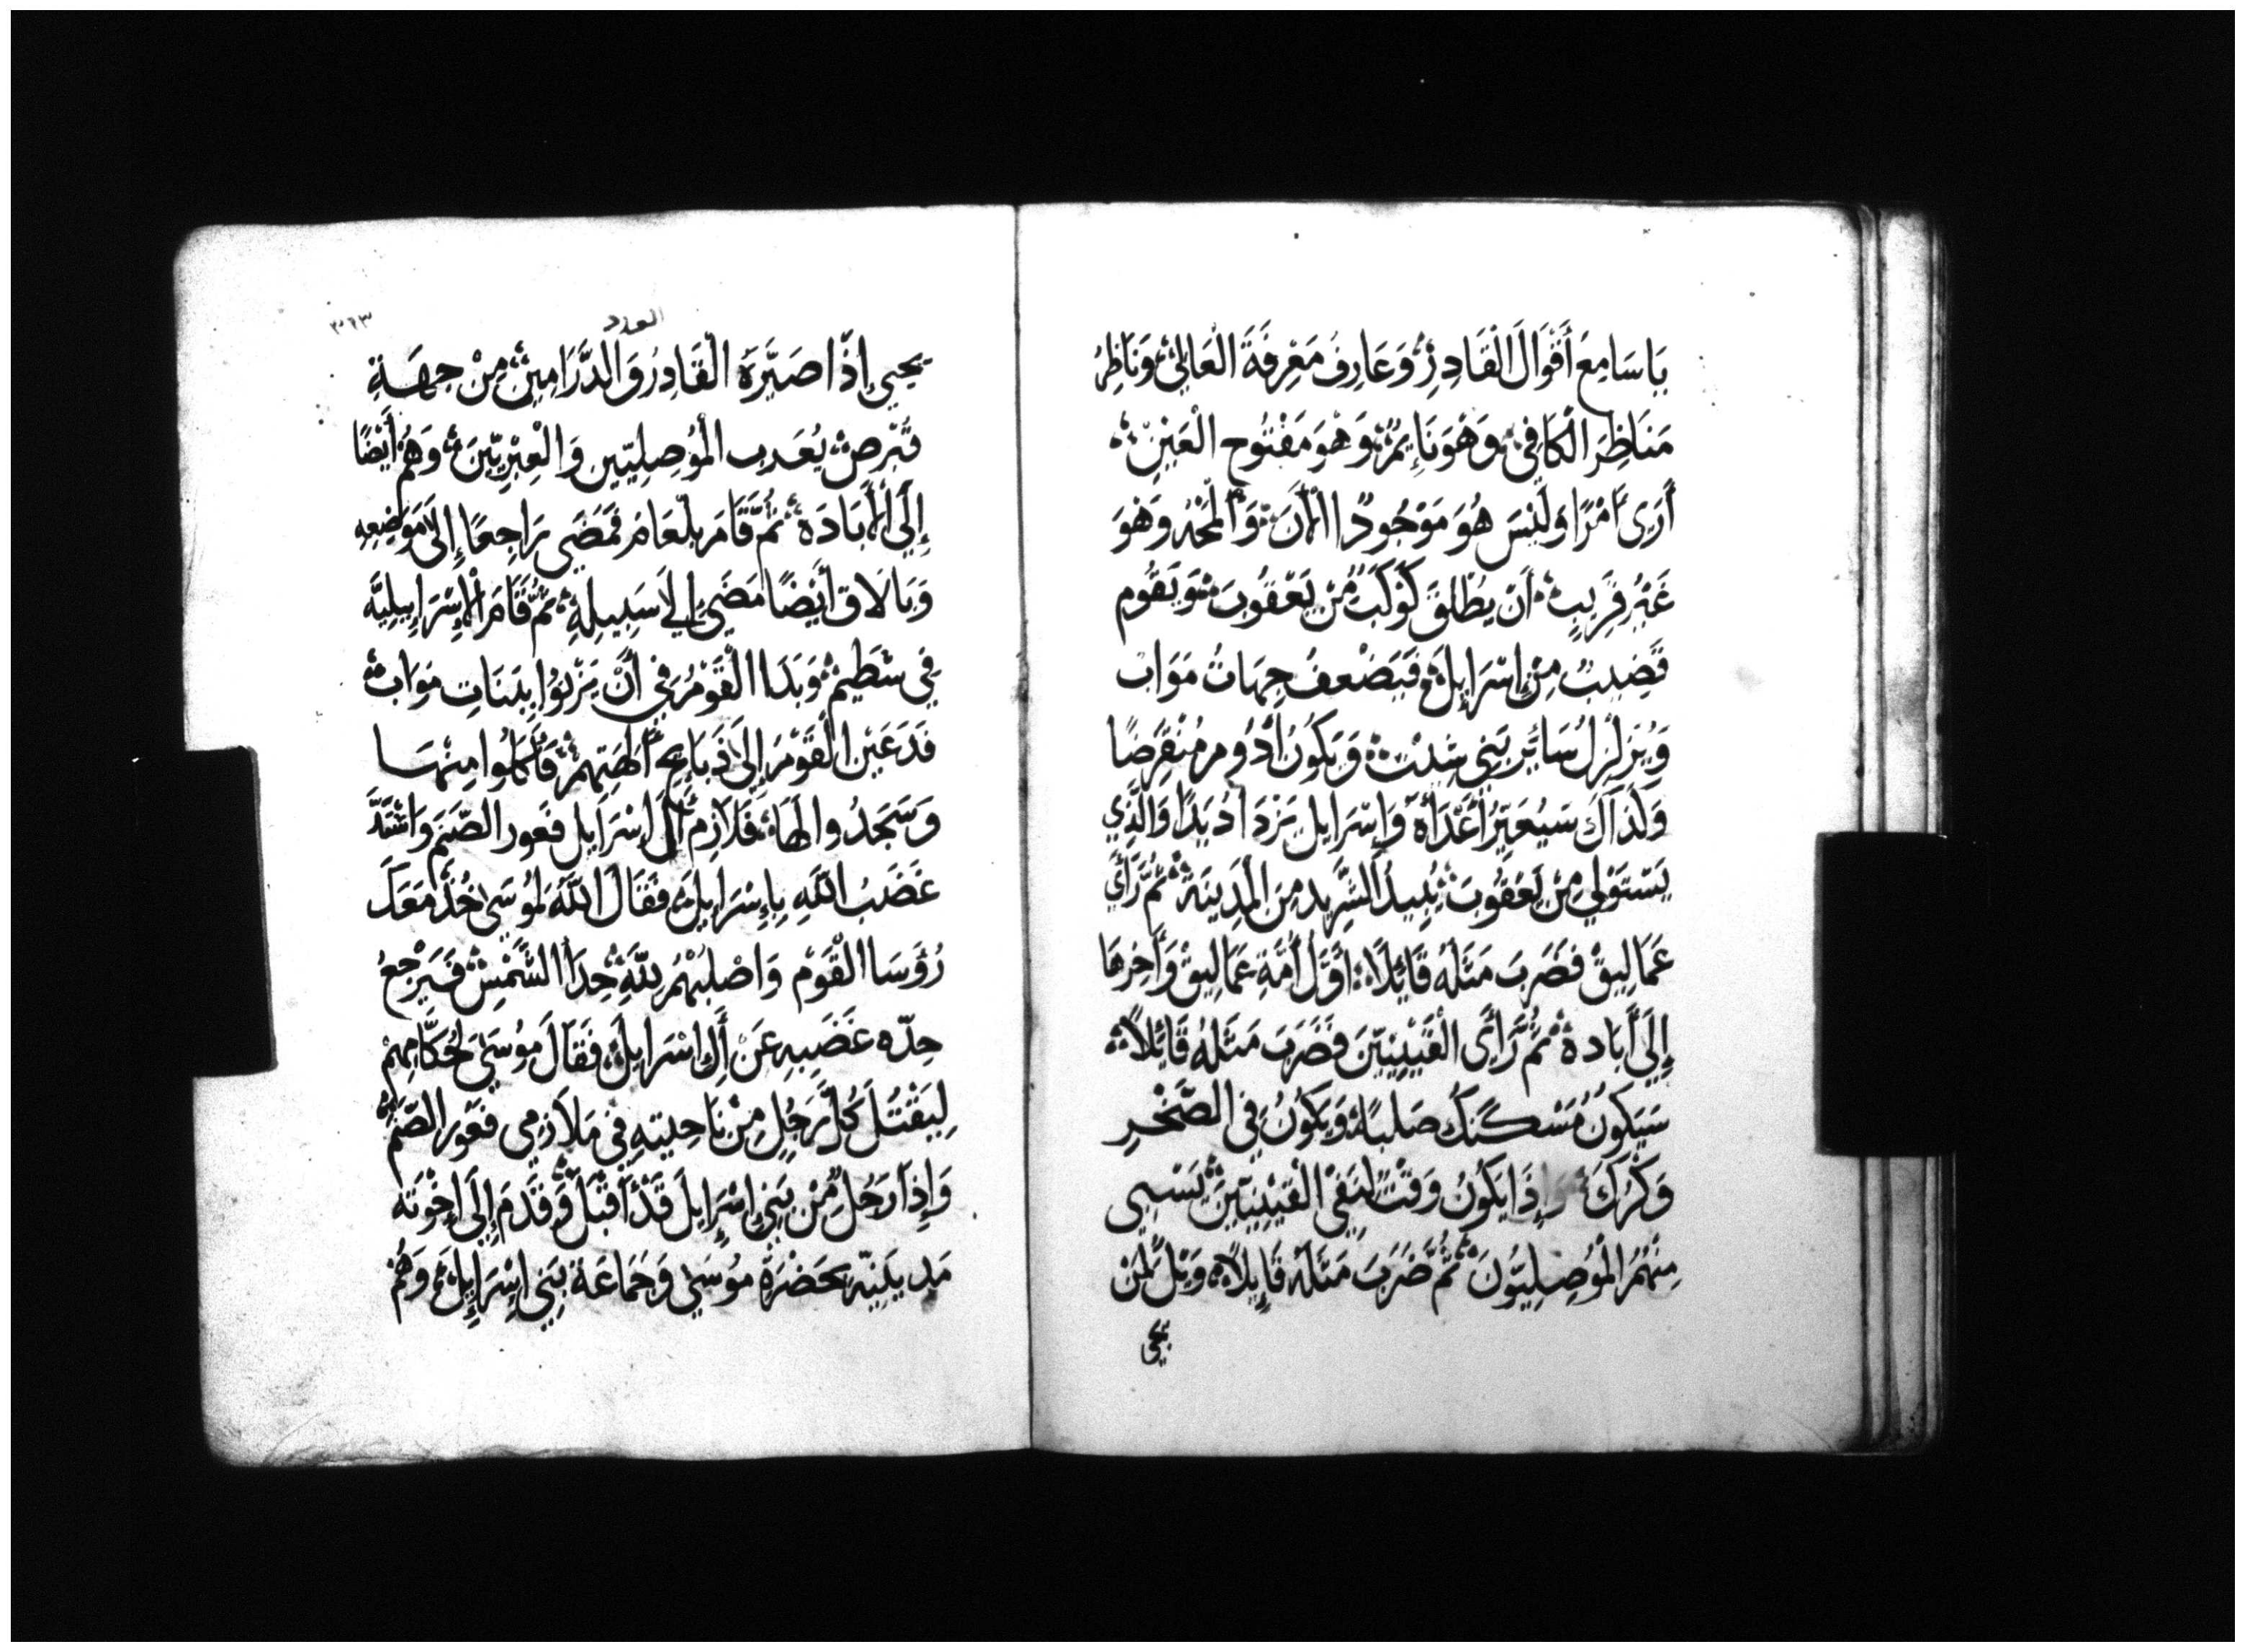 يَا سَامِعَ أَقْوَالَ الْقَادِرِ وَعَارِفُ مَعْرِفَةَ الْعَالِيْ وَنَاظِرُ
مَنَاظِرَ الْكَافِيْ وَهْوَ نَايِمٌ وَهْوَ مَفْتُوح الْعَيْنِ
أَرَى أَمْرًا وَلَيْسَ هُوَ مَوْجُودٌ االْأَنَ وَأَلْمَحُهُ وَهْوَ
غَيْرُ قَرِيبٍ أَنْ يُطْلَقَ كَوْكَبٌ مِّنْ يَعْقُوبَ وَيَقُوم
قَضِيبٌ مِنْ إِسْرَايِلَ فَيَضْعفُ جِهَاتُ مَوَاب
وَيُزَلْزِلُ سَائِر بَنِي شِيْث وَيَكُونُ أَدُوم مُنْقَرِضًا
وَلَذَاكَ سَيُعَيِّرُ أَعْدَاهُ وَإِسْرَايل يَزْدَادُ يَدًا وَالَّذِي
يَسْتَوْلِي مِنْ يَعَقُوبَ يُبِيدُ الشَّرِيد مِنَ الْمَدِينَة ثُمَّ رَأَي
عَمَالِيقْ فَضَرَبَ مَثَلَهُ قَائِلًا اوَّلُ أُمَّةِ عَمَالِيق وَأَخِرهَا
إِلَى أَبَادة ثُمَّ رَأَى الْقَيْنِيِّينَ فَضَرَبَ مَثَلَهُ قَائِلًا
سَيَكُونُ مُسْكنكَ صَلبًا وَيَكُونُ فِي الصَّخْرِ
وَكْرُكَ وَإِذَا يَكُونُ وَقْتًا لِنَفْي الْقَيْنِيِّينَ يَسْبِي
مِنْهُمُ الْمُوصِلِيُّونَ ثُمَّ ضَرَبَ مَثَلَهُ قَايِلًا وَيْلٌ لِمَنْ
يحيى
العدد
٣٢٣
يحيي إِذَا صَيَّرَهُ الْقَادِرُ وَالدَّرَامِينَ مِنْ جِهَةِ
قُبْرص يُعَذب الْمُوصِلِيّين وَالْعِبْرِيِّينَ وَهُمْ أَيْضًا
إِلَى الْأَبَادَة ثُمَّ قَامَ بِلْعَامُ فَمَضَى رَاجِعًا إِلَى مَوَاضِعِهِ
وَبَالَاق أَيْضًا مَضَى إِلي سَبِيلِهِ ثُمَّ قَامَ الْإِسْرَايِيلِيَّة
فِي شَطِيم وَبَدَا الْقَوْمُ فِي أَنْ يَزْنُوا بِبَنَاتِ مَوَاب
فَدَعَيْن الْقَوْمَ إِلَى ذَبَايِح أَلهتِهِمْ فَأَكَلُوا مِنْهَا
وَسَجَدُوا لَهَا فَلَازِم أَلَ اسْرَايل فَعور الصّنَم وَاشْتَدَّ
غَضَبُ اللَّهِ بِإِسْرَايِل فَقَالَ اللَّهُ لِمُوسَى خُذْ مَعَكَ
رُؤَسَا الْقَوْم وَاصْلُبْهُمْ للَّهِ حِدَا الشَّمْسِ فَيَرْجعُ
حِدّه غَضَبِهِ عَنْ أَلِ اسْرَايِلَ فَقَالَ مُوسَى لِحُكَّامِهِمْ
لِيَقْتُلَ كُلَّ رَجُلٍ مِنْ نَاحِيتهِ فِي مَلَازمي فَعَوْر الصّنَم
وَإِذَا رَجُلٌ مِّنْ بَنِي إِسْرَايِلَ قَدْ أَقْبَلَ وَقَدَّمَ إِلَى إِخْوَته
مَديَنِيّه بِحَضْرَة مُوسَي وَجَمَاعَة بَنِي اسْرَايِيل وَهُمْ